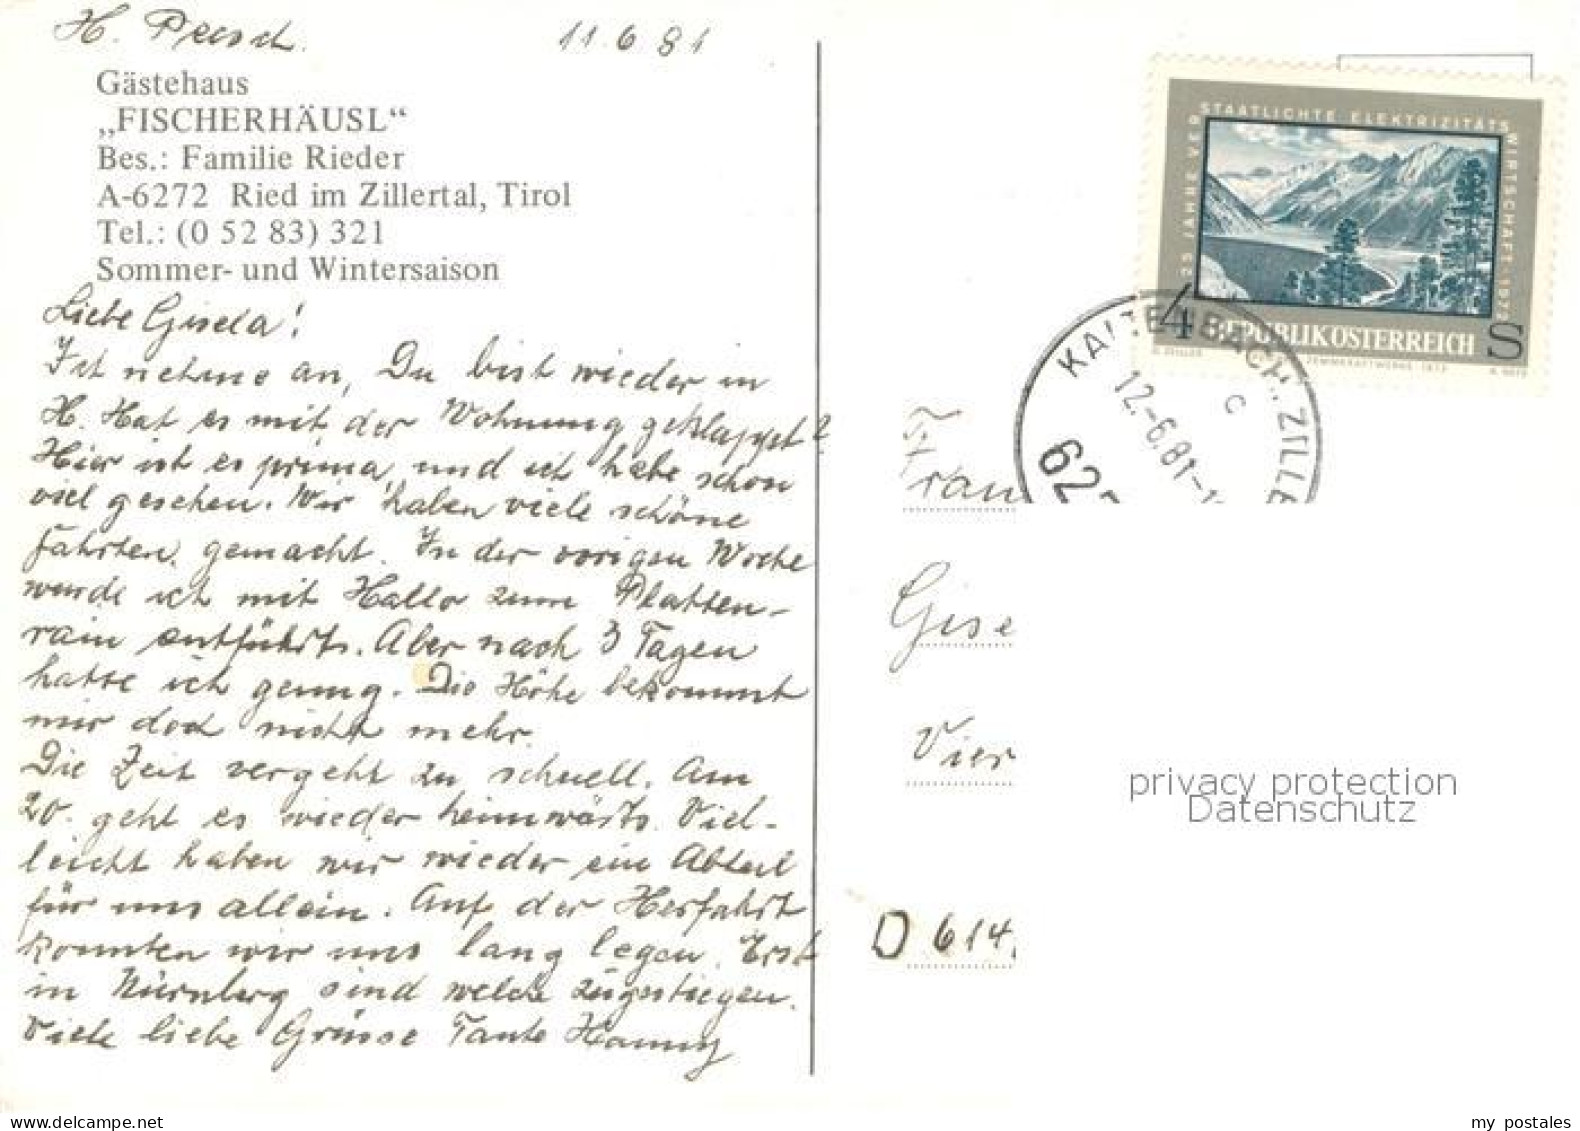 H. Peesch. 11.6.81
Gästehaus
„FISCHERHÄUSL“
Bes.: Familie Rieder
A-6272 Ried im Zillertal, Tirol
Tel.: (0 52 83) 321
Sommer- und Wintersaison
Liebe Gisela!
Ich nehme an, Du bist wieder in
H. Hat es mit der Wohnung geklappt?
Hier ist es prima, und ich habe schon
viel gesehen. Wir haben viele schöne
Fahrten gemacht. In der vorigen Woche
wurde ich mit Hallo zum Platten-
rain entführt. Aber nach 3 Tagen
hatte ich genug. Die Höhe bekommt
mir doch nicht mehr.
Die Zeit vergeht zu schnell. Am
20. geht es wieder heimwärts. Viel-
leicht haben wir wieder ein Abteil
für uns allein. Auf der Herfahrt
konnten wir uns lang legen. Erst
in Nürnberg sind welche zugestiegen.
Viele liebe Grüsse Tante Hanny
25 JAHRE VERSTAATLICHTE ELEKTRIZITÄTSWIRTSCHAFT · 1972
4 REPUBLIK ÖSTERREICH S
12.-6.81-1
c
ZILLE
627
Frau
Gise
Vier
privacy protection
Datenschutz
D 614
my postales